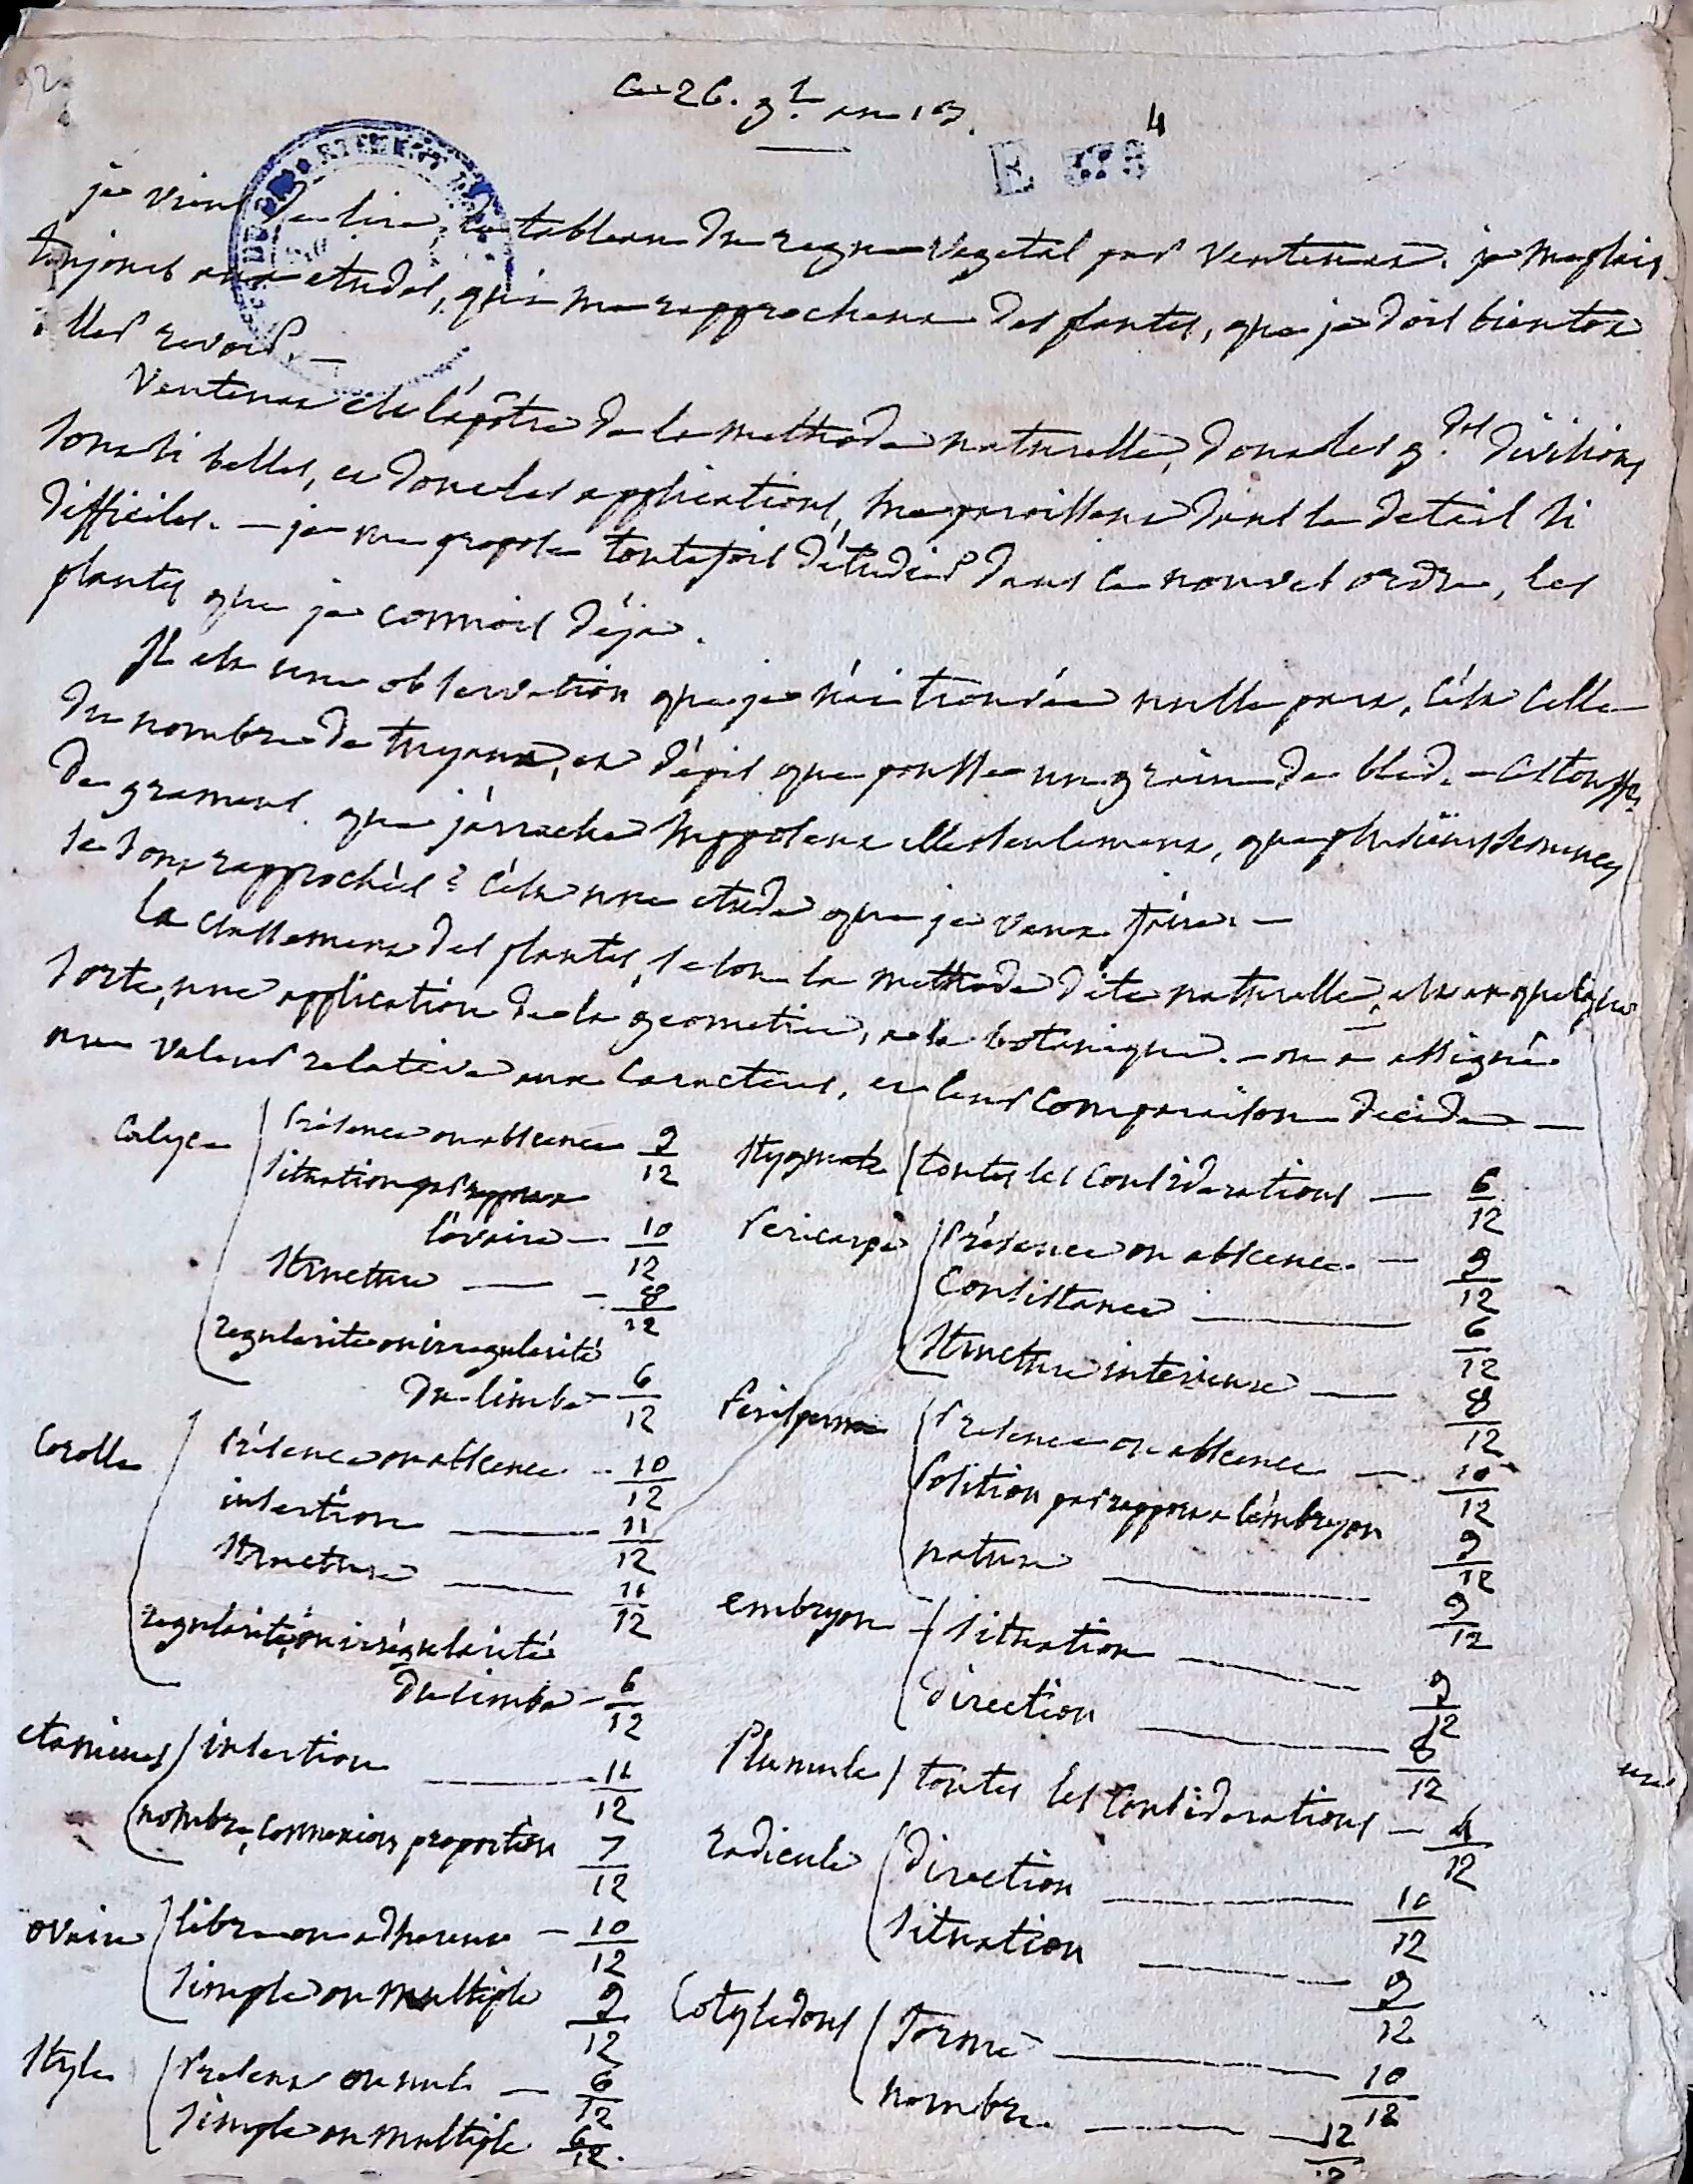 Ce 26. g.l an 13.
4
E 378
je viens de lire, le tableau du regne vegetal par Ventenat. je me plais
toujours aux etudes, qui me rapprochent des plantes, que je dois bientot
aller revoir. —
Ventenat est l'apôtre de la methode naturelle, dont les g.des divisions
sont si belles, et dont les applications, me paroissent dans le detail si
difficiles. — je me propose toutefois d'étudier dans ce nouvel ordre, les
plantes que je connois déja.
Il est une observation que je n'ai trouvée nulle part, c'est celle
du nombre de tuyaux, et d'épis que pousse un grain de bled. — Ces touffes
de gramens que j'arrache supposent elles seulement, que plusieurs semences
se sont rapprochées? c'est une etude que je veux faire. —
Le classement des plantes, selon la methode dite naturelle, est en quelque
sorte, une application de la geometrie, a la botanique. — on a assigné
une valeur relative aux caracteres, et leur comparaison decide —
Calyce
Présence ou abscence 9/12
situation par rapport a
l'ovaire — 10/12
structure — 8/12
regularité ou irregularité
du limbe — 6/12
Corolle
Présence ou abscence — 10/12
insertion — 11/12
structure — 11/12
regularité, ou irrégularité
du limbe — 6/12
etamines
insertion — 11/12
nombre, connexion, proportion 7/12
ovaire
libre ou adherent — 10/12
simple ou multiple 9/12
style
Présent ou nul — 6/12
simple ou multiple 6/12.
stygmate
toutes les considerations — 6/12
Pericarpe
Présence ou abscence. — 9/12
Consistance — 6/12
structure interieure — 8/12
Perisperme
Presence ou abscence — 10/12
Position par rapport a l'embryon 9/12
nature — 9/12
embryon
situation — 9/12
direction — 8/12
Plumule
toutes les considerations — 4/12
radicule
direction — 10/12
situation — 9/12
Cotyledons
Forme — 10/12
nombre — 12/12